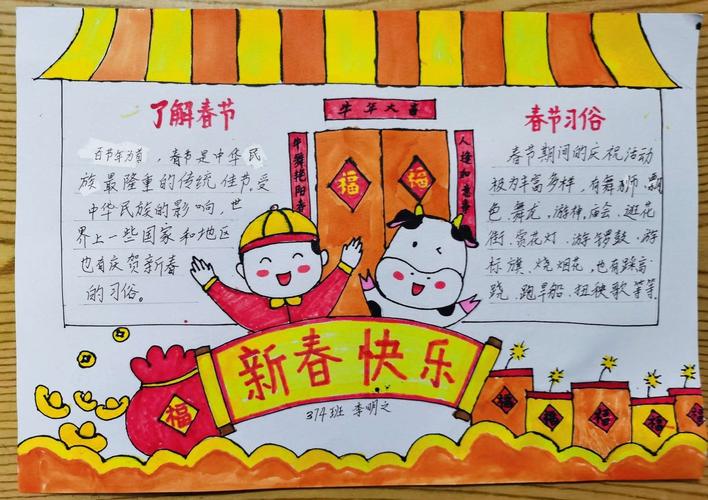 牛年大
牛舞艳阳春
人逢如意
福
福
了解春节
百节年为首，春节是中华民
族最隆重的传统佳节，受
中华民族的影响，世
界上一些国家和地区
也有庆贺新春
的习俗。
春节习俗
春节期间的庆祝活动
极为丰富多样，有舞狮、飘
色、舞龙、游神、庙会、逛花
街、赏花灯、游锣鼓、游
标旗、烧烟花，也有踩高
跷、跑旱船、扭秧歌等等.
新春快乐
374班 李明之
福
福
福
福
福
福